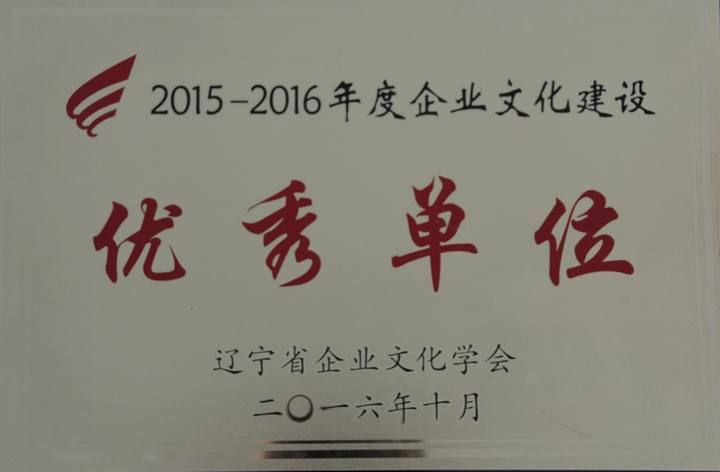 2015-2016年度企业文化建设
优秀单位
辽宁省企业文化学会
二〇一六年十月